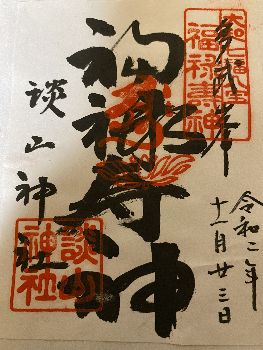 多武峯
福禄寿神
談山神社
令和二年
十一月廿三日
福禄寿神
談山
神社